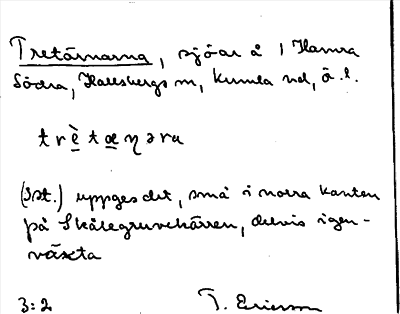 Tretärnarna, sjöar å 1 Hamra
Södra, Hallsbergs sn, Kumla hd, Ö.l.
trètæŋəra
(3 st.) uppges det, små i norra kanten
på Skålegruvekärren, delvis igen-
växta
3:2 T. Ericsson